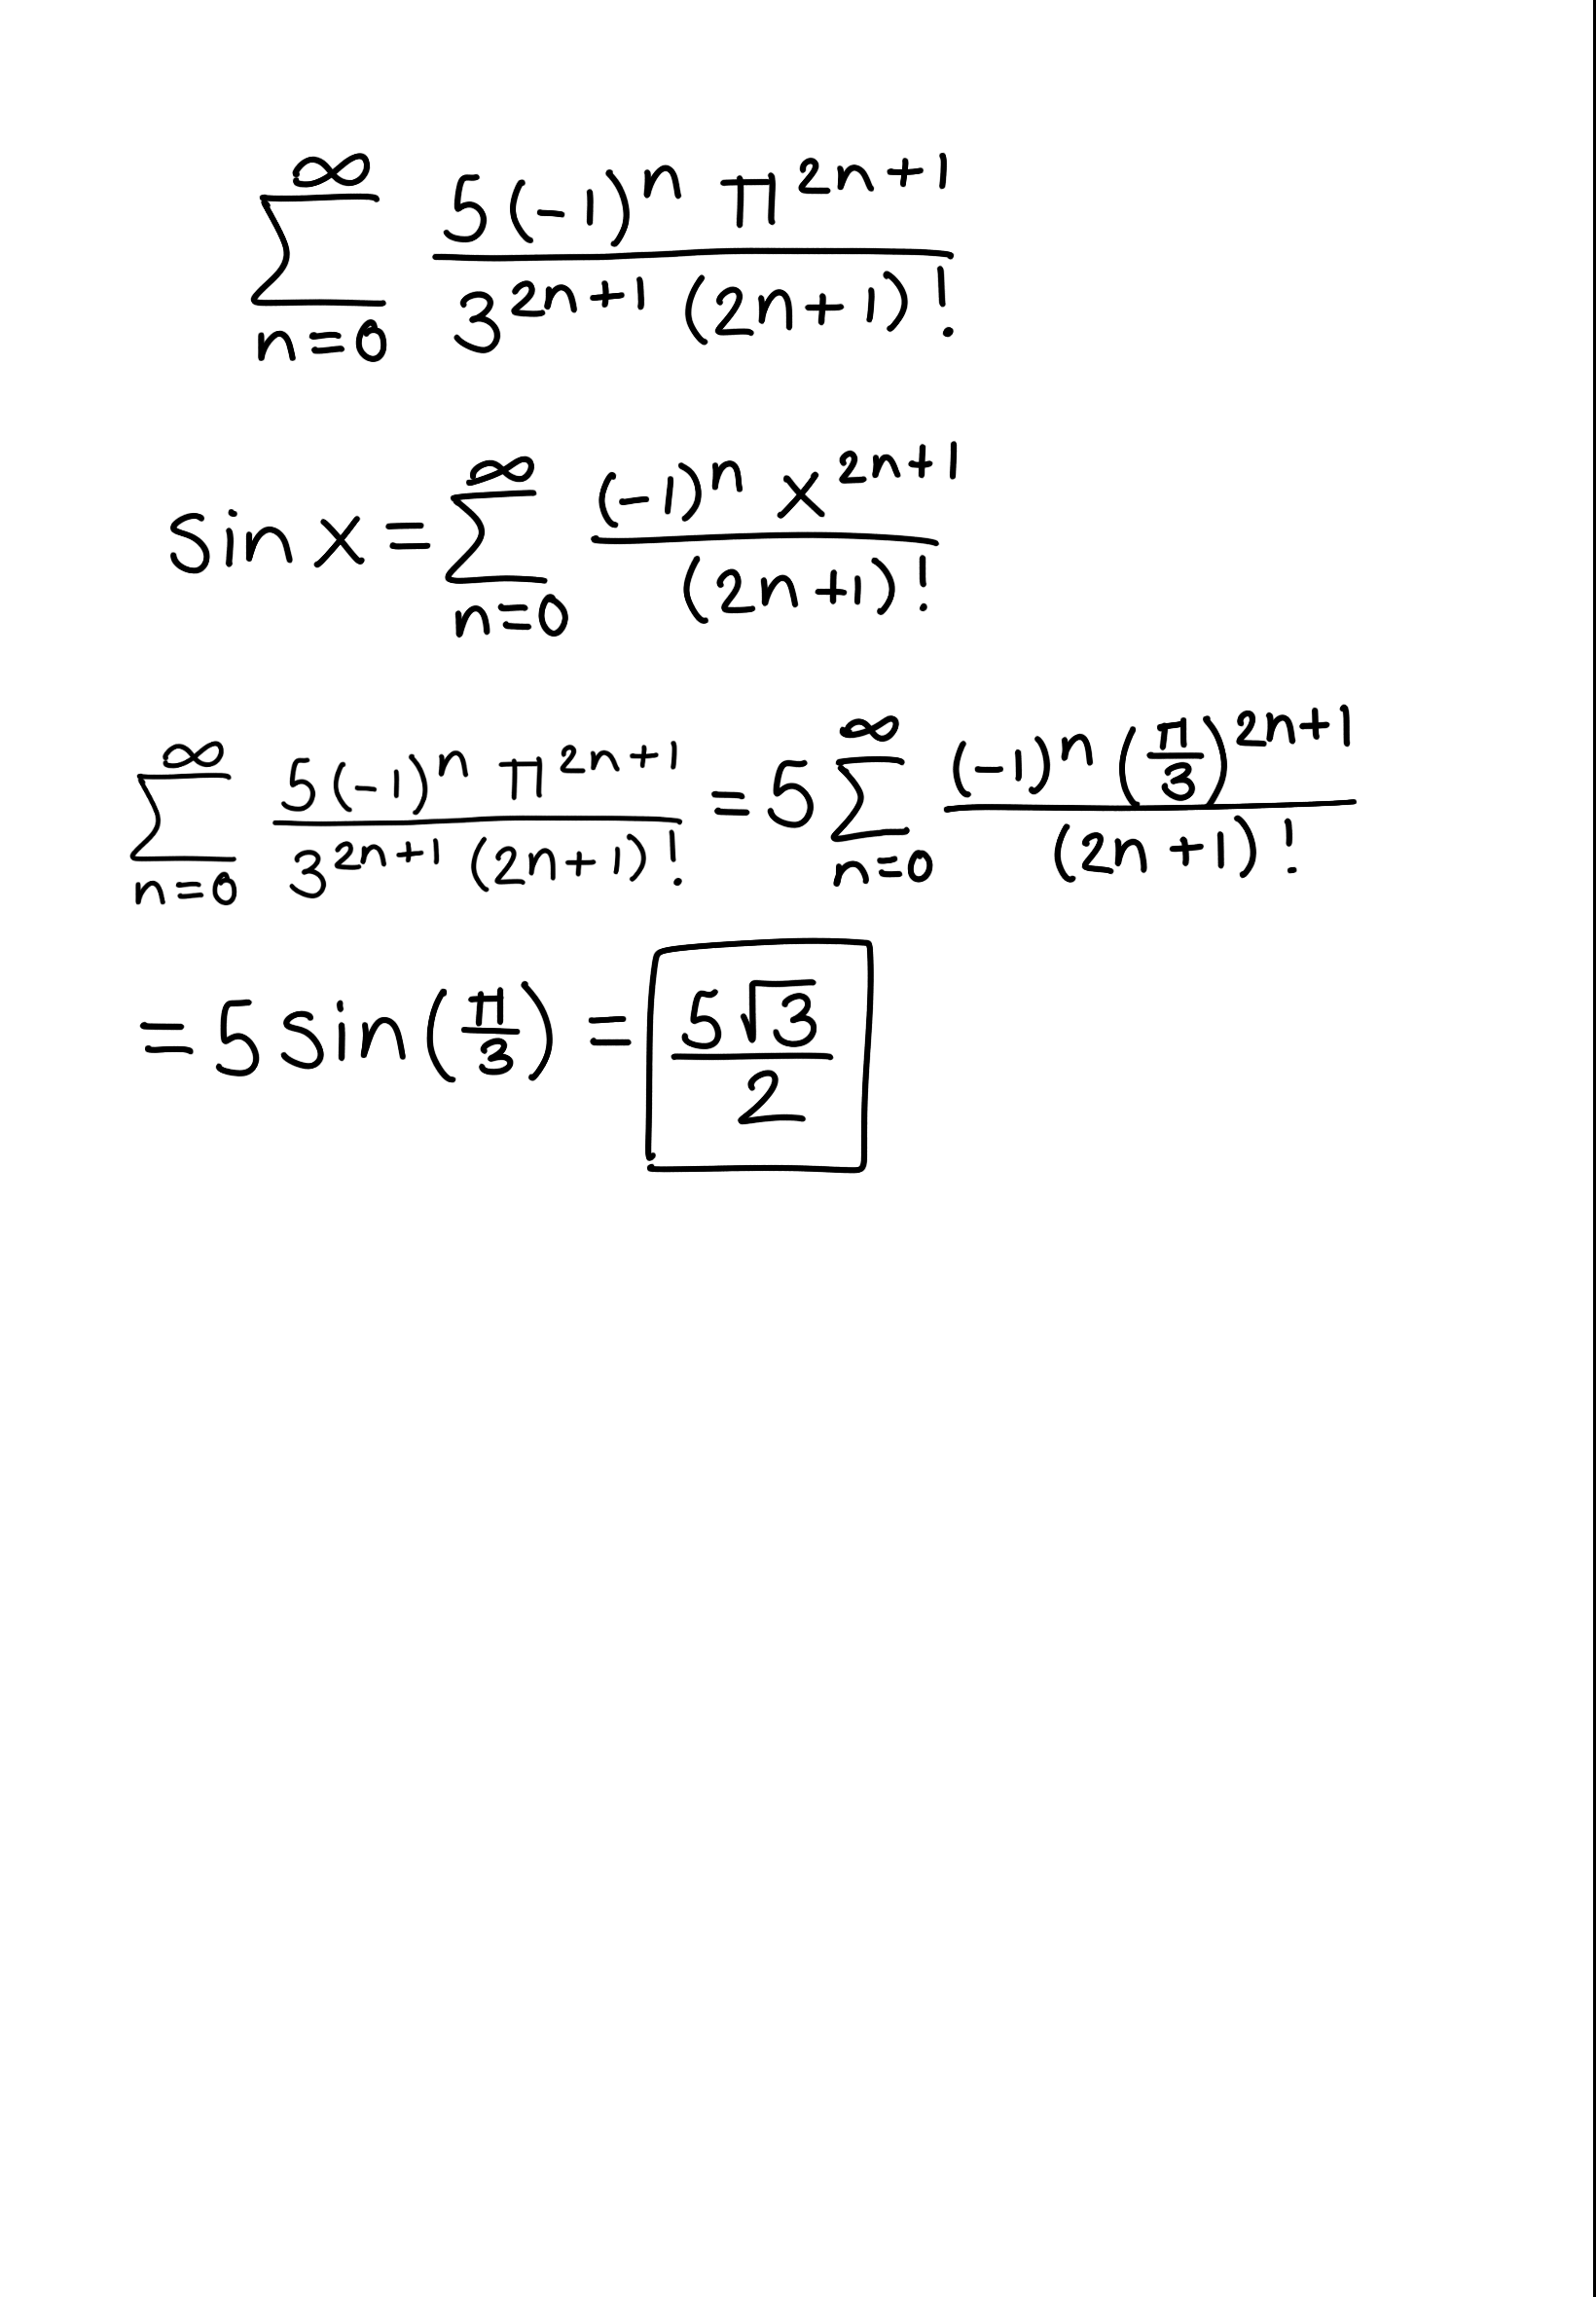 $\sum_{n=0}^{\infty} \frac{5(-1)^n \pi^{2n+1}}{3^{2n+1}(2n+1)!}$
$\sin x = \sum_{n=0}^{\infty} \frac{(-1)^n x^{2n+1}}{(2n+1)!}$
$\sum_{n=0}^{\infty} \frac{5(-1)^n \pi^{2n+1}}{3^{2n+1}(2n+1)!} = 5 \sum_{n=0}^{\infty} \frac{(-1)^n \left(\frac{\pi}{3}\right)^{2n+1}}{(2n+1)!}$
$= 5 \sin\left(\frac{\pi}{3}\right) = \boxed{\frac{5\sqrt{3}}{2}}$